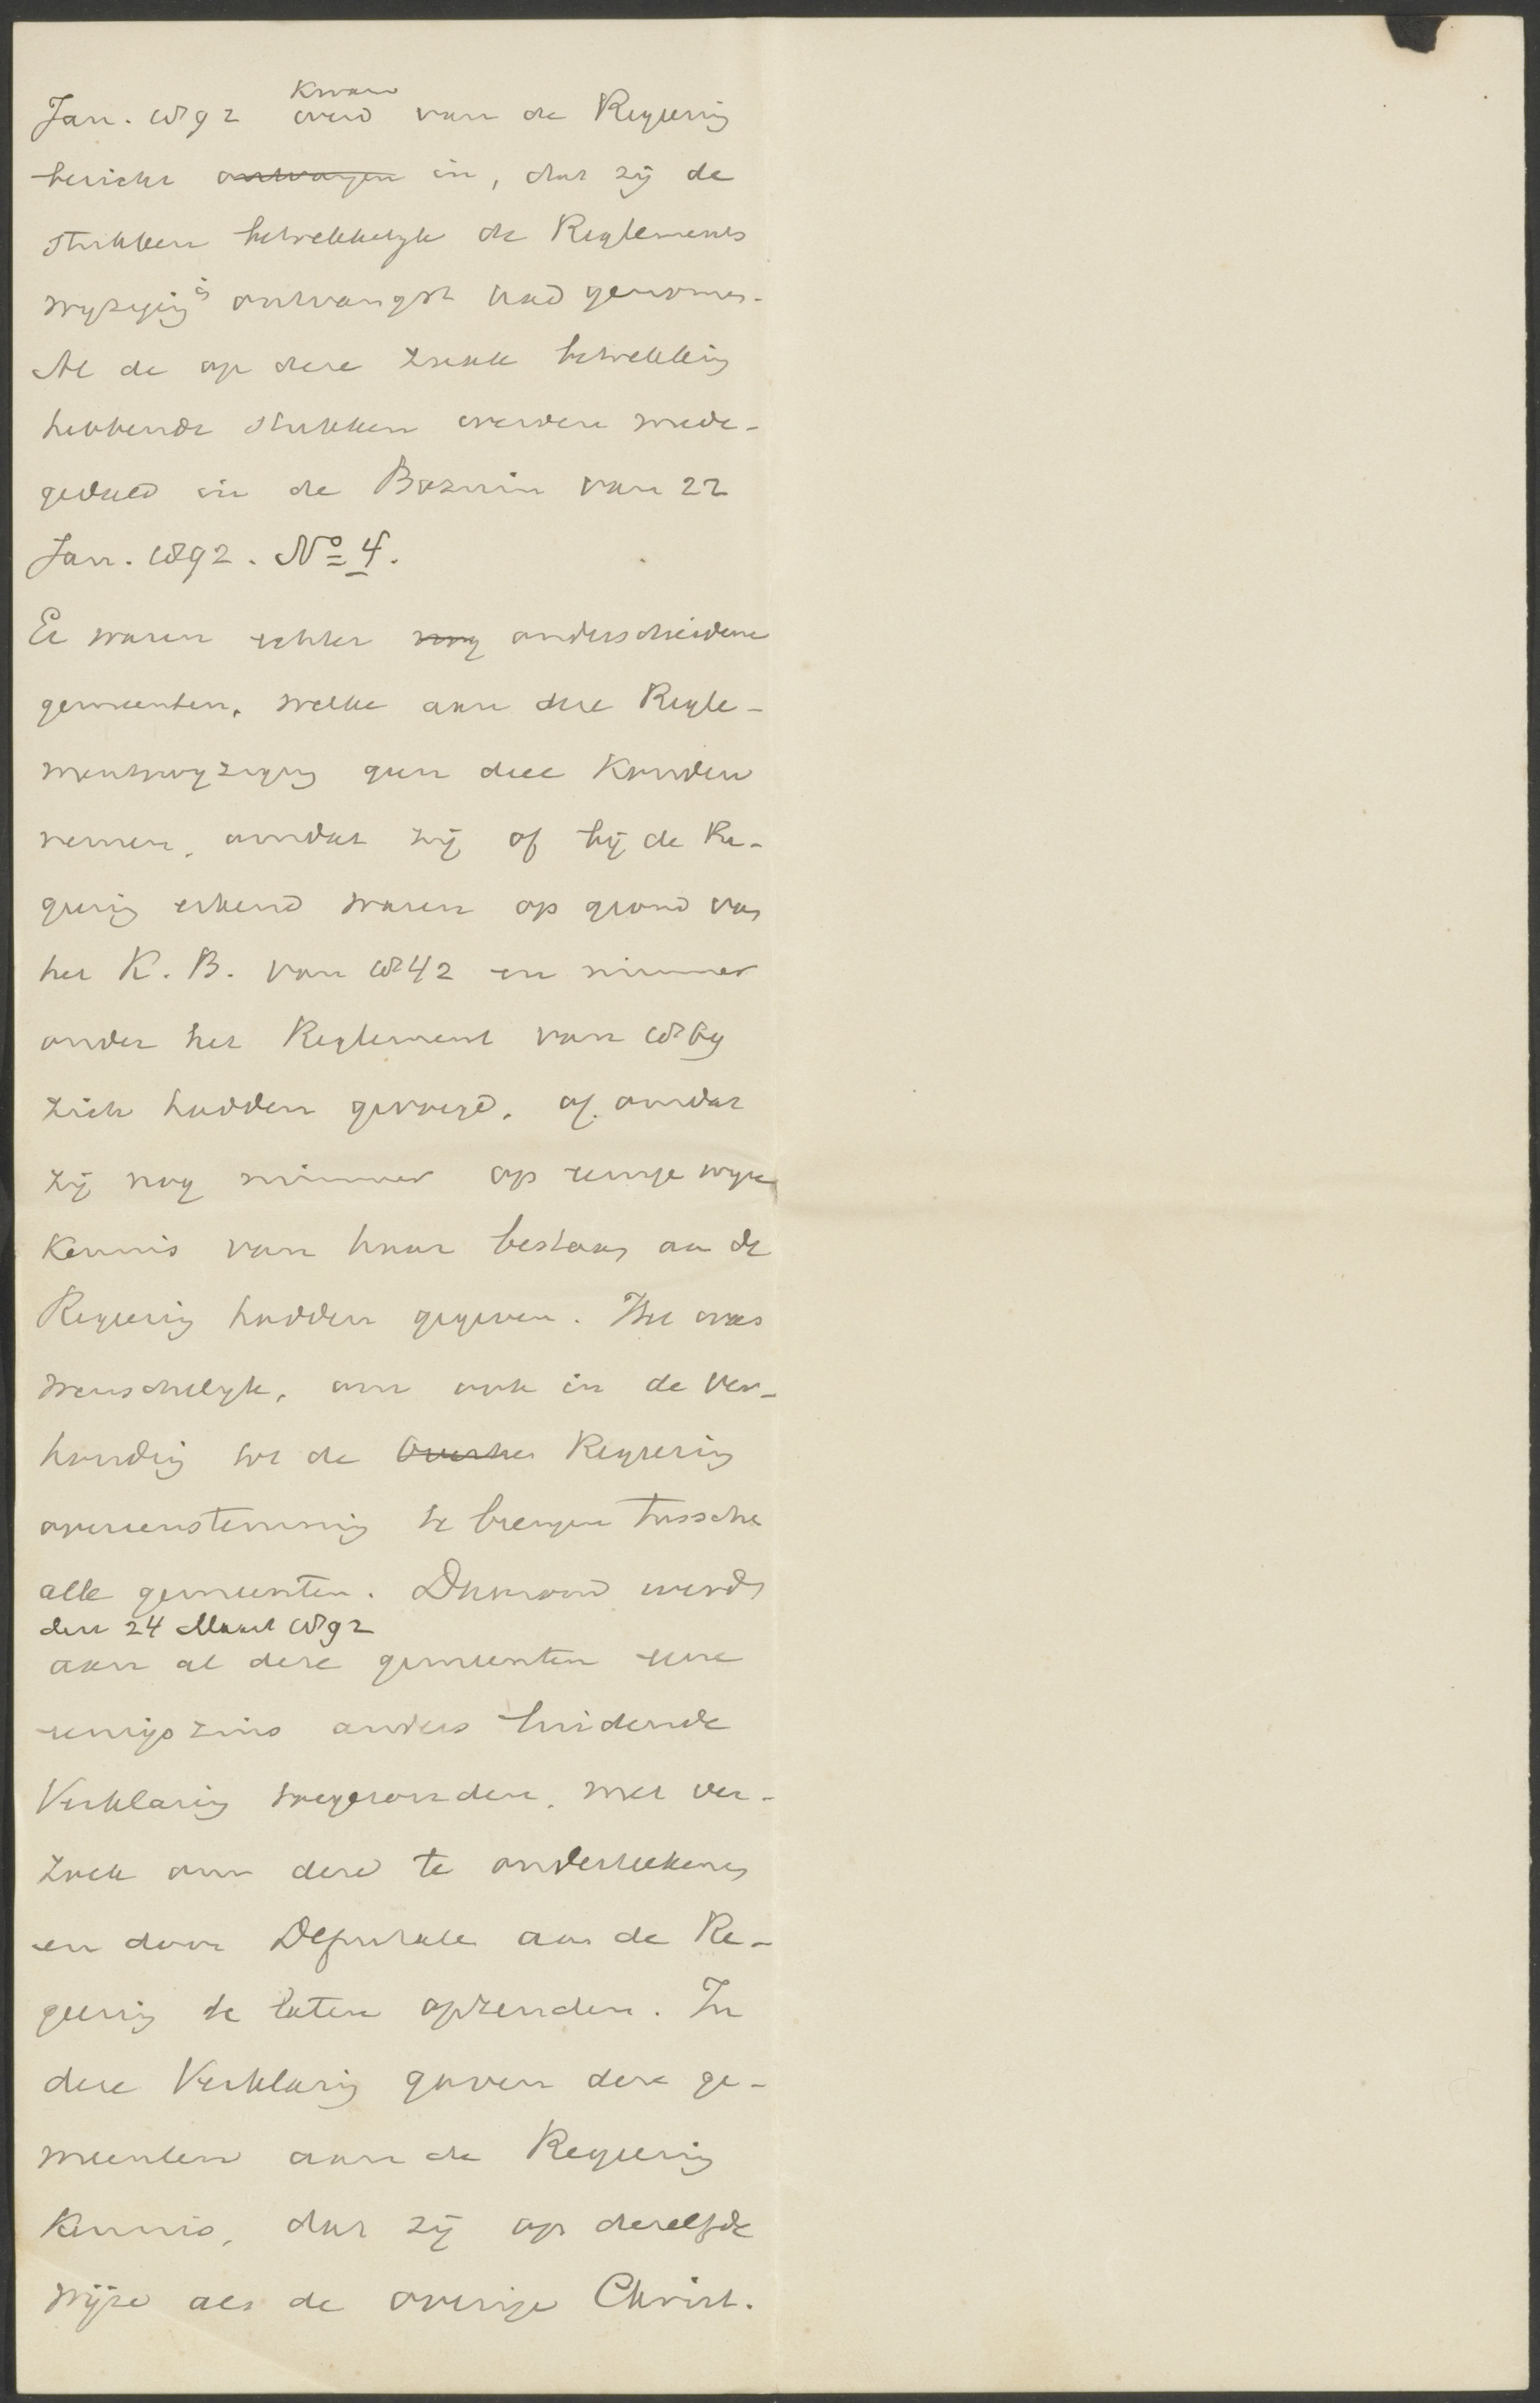 Kwam
Jan. 1892 werd van de Regeering
bericht ontvangen in, dat zij de
stukken betrekkelijk de Reglements
wijziging in ontvangst had genomen.
Al de op deze zaak betrekking
hebbende stukken werden mede-
gedeeld in de Bazuin van 22
Jan. 1892. No 4.
Er waren echter nog onderscheidene
gemeenten, welke aan deze Regle-
mentswijziging geen deel konden
nemen, omdat zij of bij de Re-
geering erkend waren op grond van
het K. B. van 1842 en nimmer
onder het Reglement van 1869
zich hadden gevoegd, of omdat
zij nog nimmer op eenige wijze
kennis van haar bestaan aan de
Regeering hadden gegeven. Het was
wenschelijk, om ook in de ver-
houding tot de Overhei Regeering
overeenstemming te brengen tussche
alle gemeenten. Daarom werd
den 24 Maart 1892
aan al deze gemeenten eene
eenigszins anders luidende
Verklaring toegezonden, met ver-
zoek om deze te onderteekenen
en door Deputate aan de Re-
geering te laten opzenden. In
deze Verklaring gaven deze ge-
meenten aan de Regeering
kennis, dat zij op dezelfde
wijze als de overige Christ.